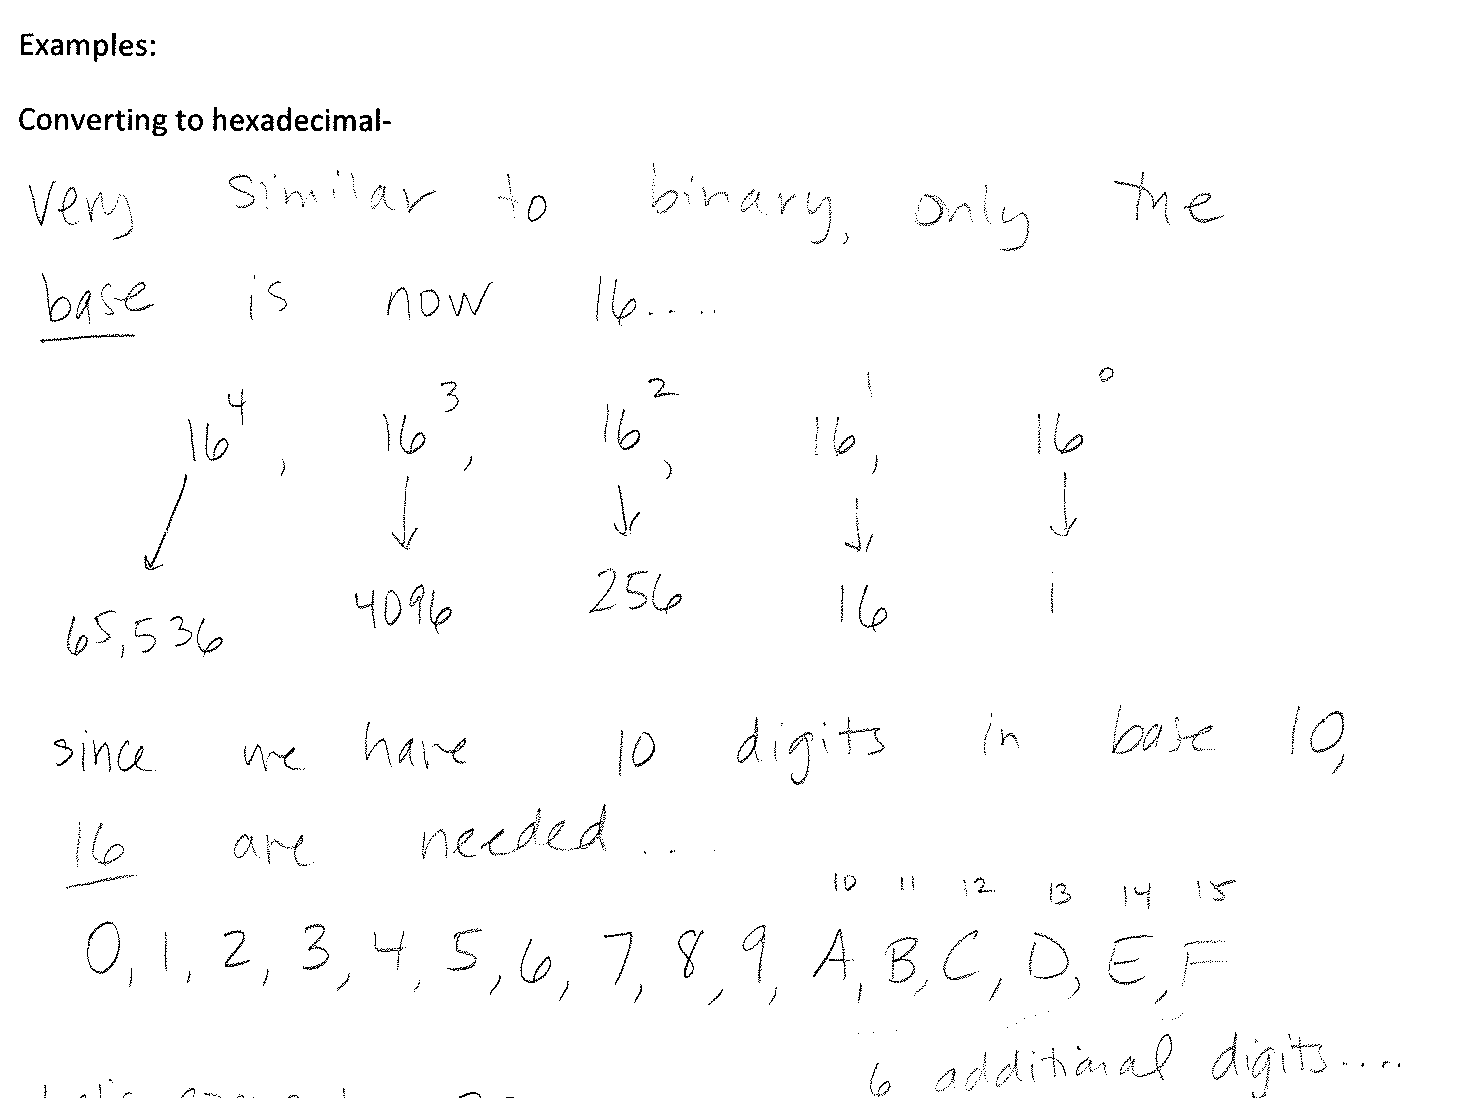 Examples:
Converting to hexadecimal-
Very similar to binary, only the
base is now 16....
16^4, 16^3, 16^2, 16^1, 16^0
65,536 4096 256 16 1
since we have 10 digits in base 10,
16 are needed....
10 11 12 13 14 15
0, 1, 2, 3, 4, 5, 6, 7, 8, 9, A, B, C, D, E, F
6 additional digits....